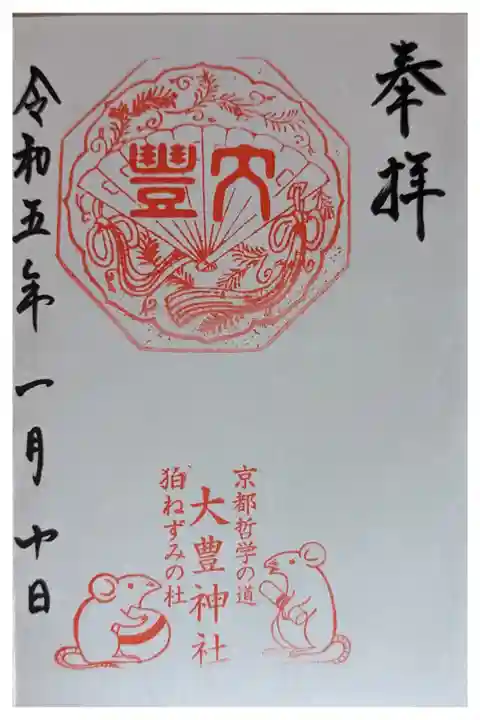 奉拝
大豐
京都哲学の道
大豊神社
狛ねずみの杜
令和五年一月十日